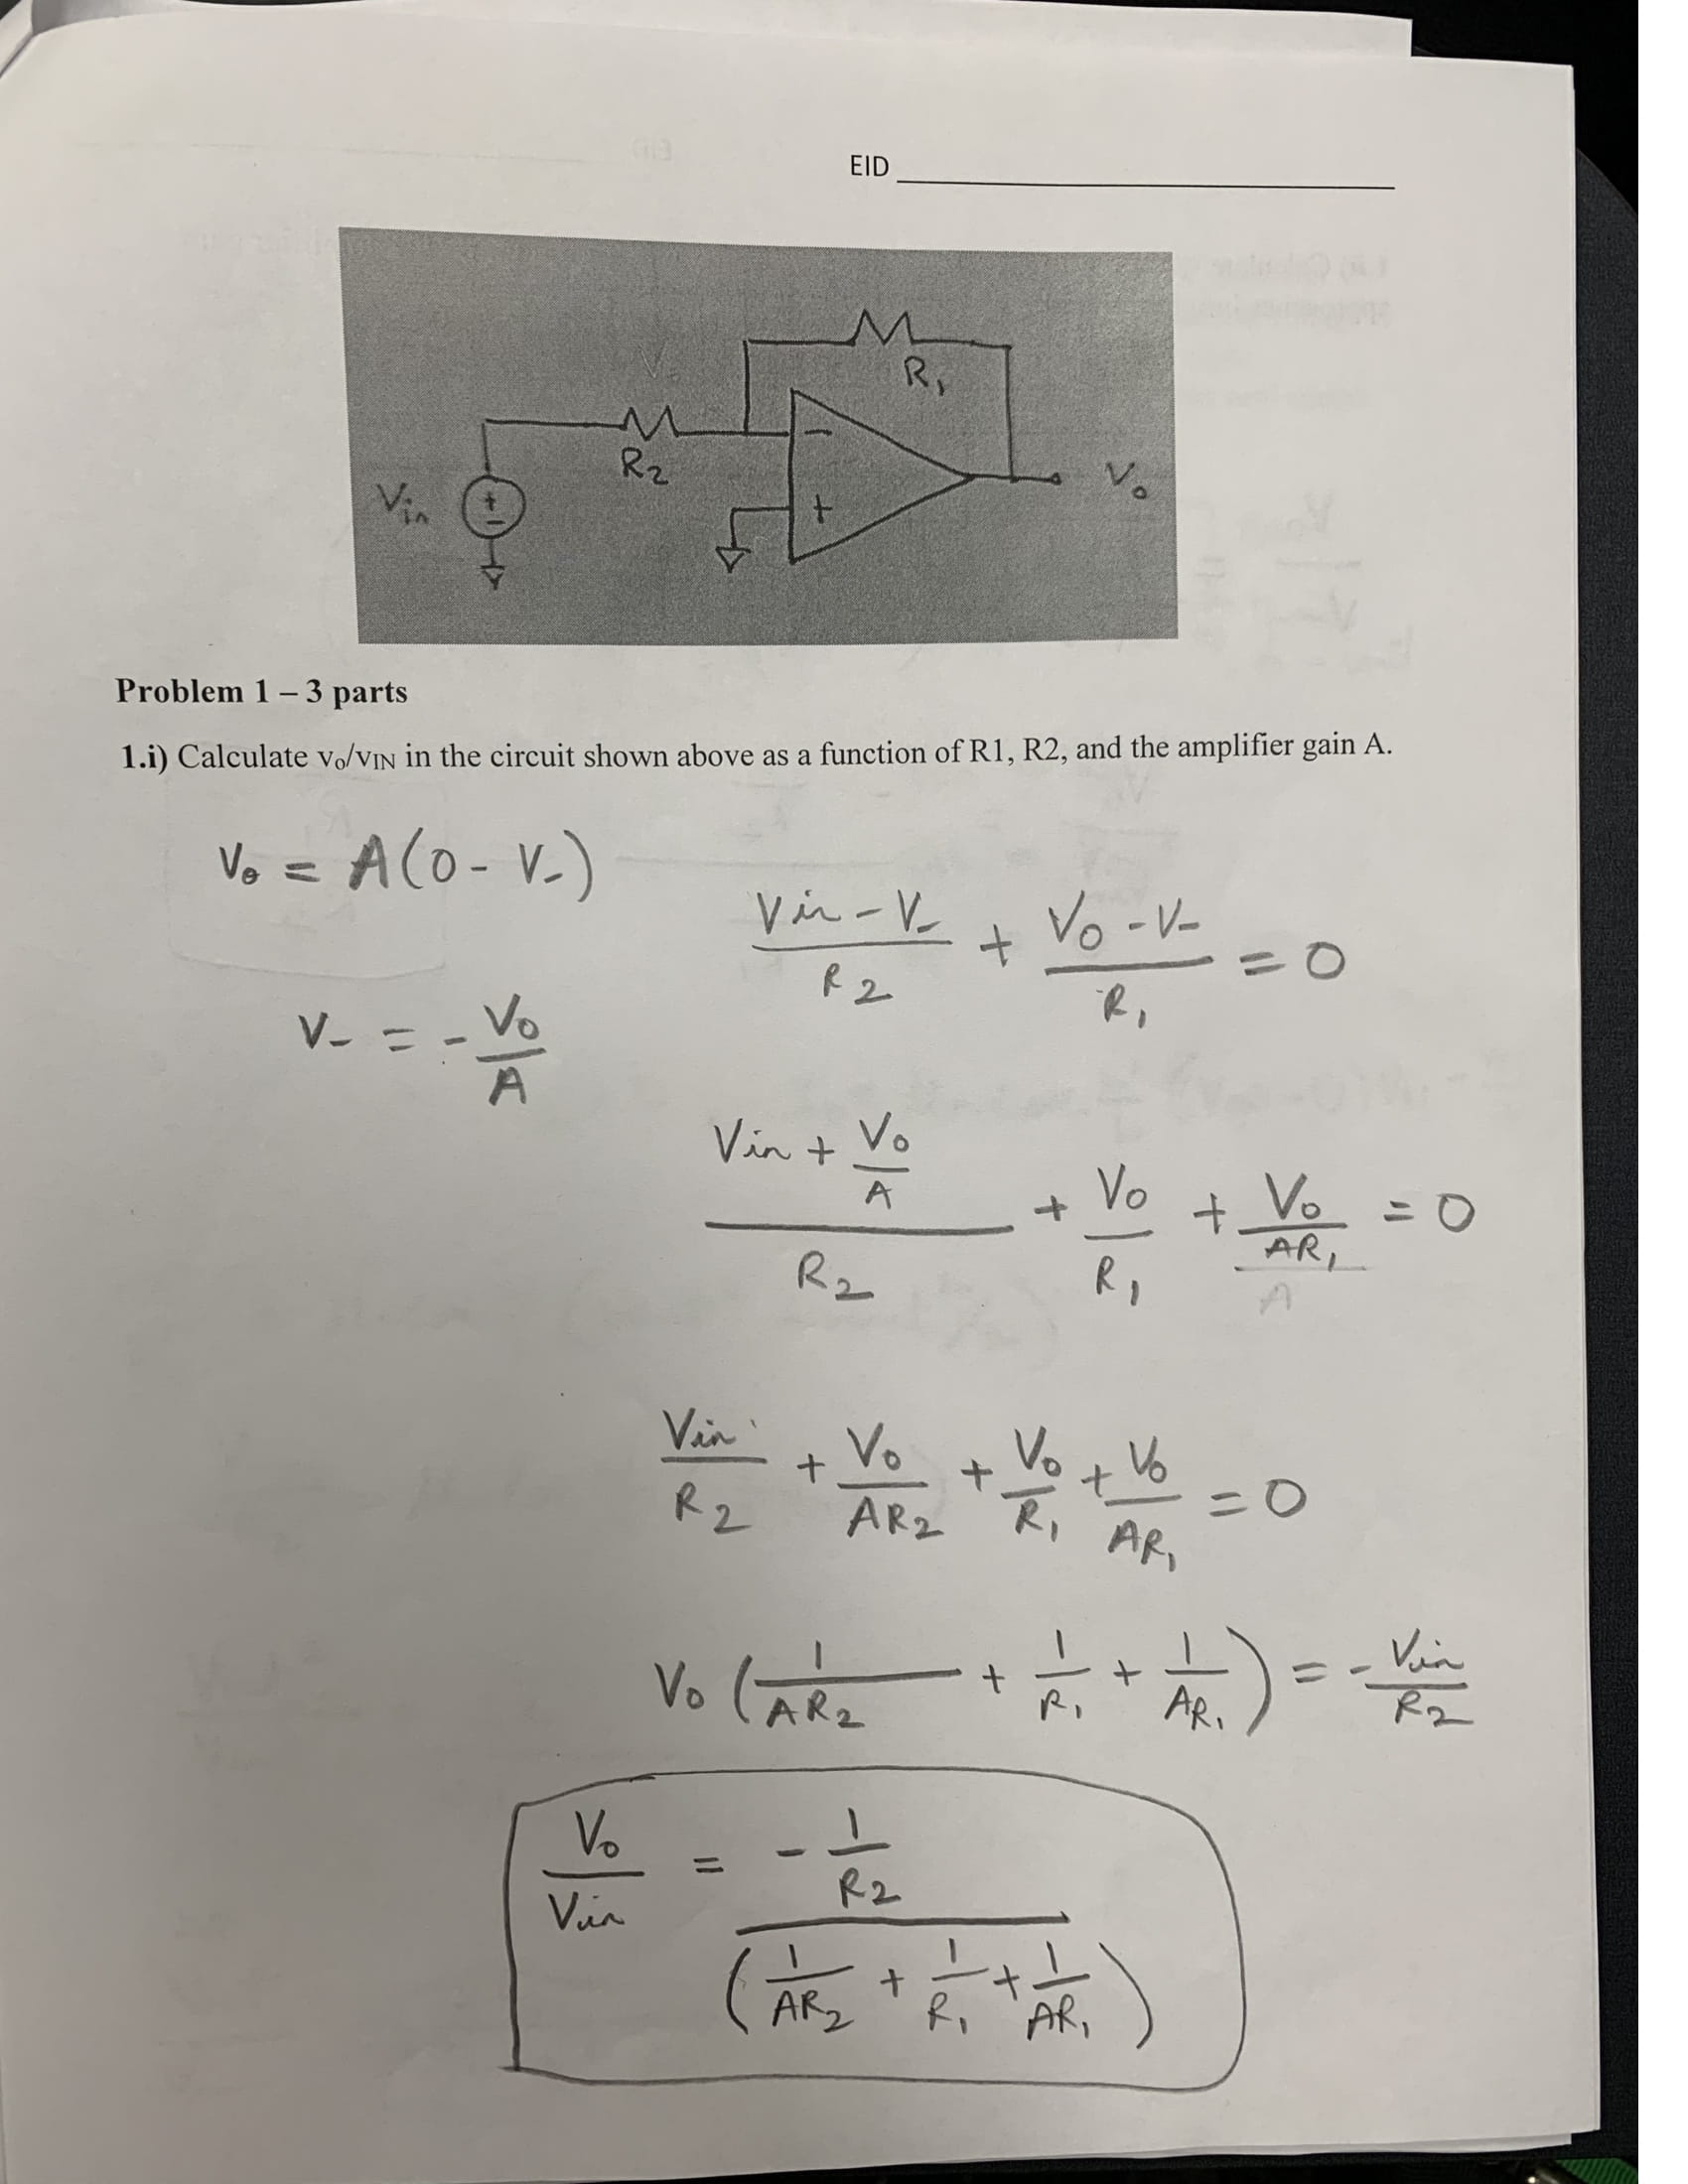 EID
R₁
R₂
Vin
+
−
−
+
V₀
Problem 1 – 3 parts
1.i) Calculate v₀/vIN in the circuit shown above as a function of R1, R2, and the amplifier gain A.
V₀ = A(0 - V₋)
(Vin - V₋)/R₂ + (V₀ - V₋)/R₁ = 0
V₋ = - V₀/A
(Vin + V₀/A)/R₂ + V₀/R₁ + V₀/AR₁ = 0
Vin/R₂ + V₀/AR₂ + V₀/R₁ + V₀/AR₁ = 0
V₀ (1/AR₂ + 1/R₁ + 1/AR₁) = - Vin/R₂
V₀/Vin = - (1/R₂)/(1/AR₂ + 1/R₁ + 1/AR₁)